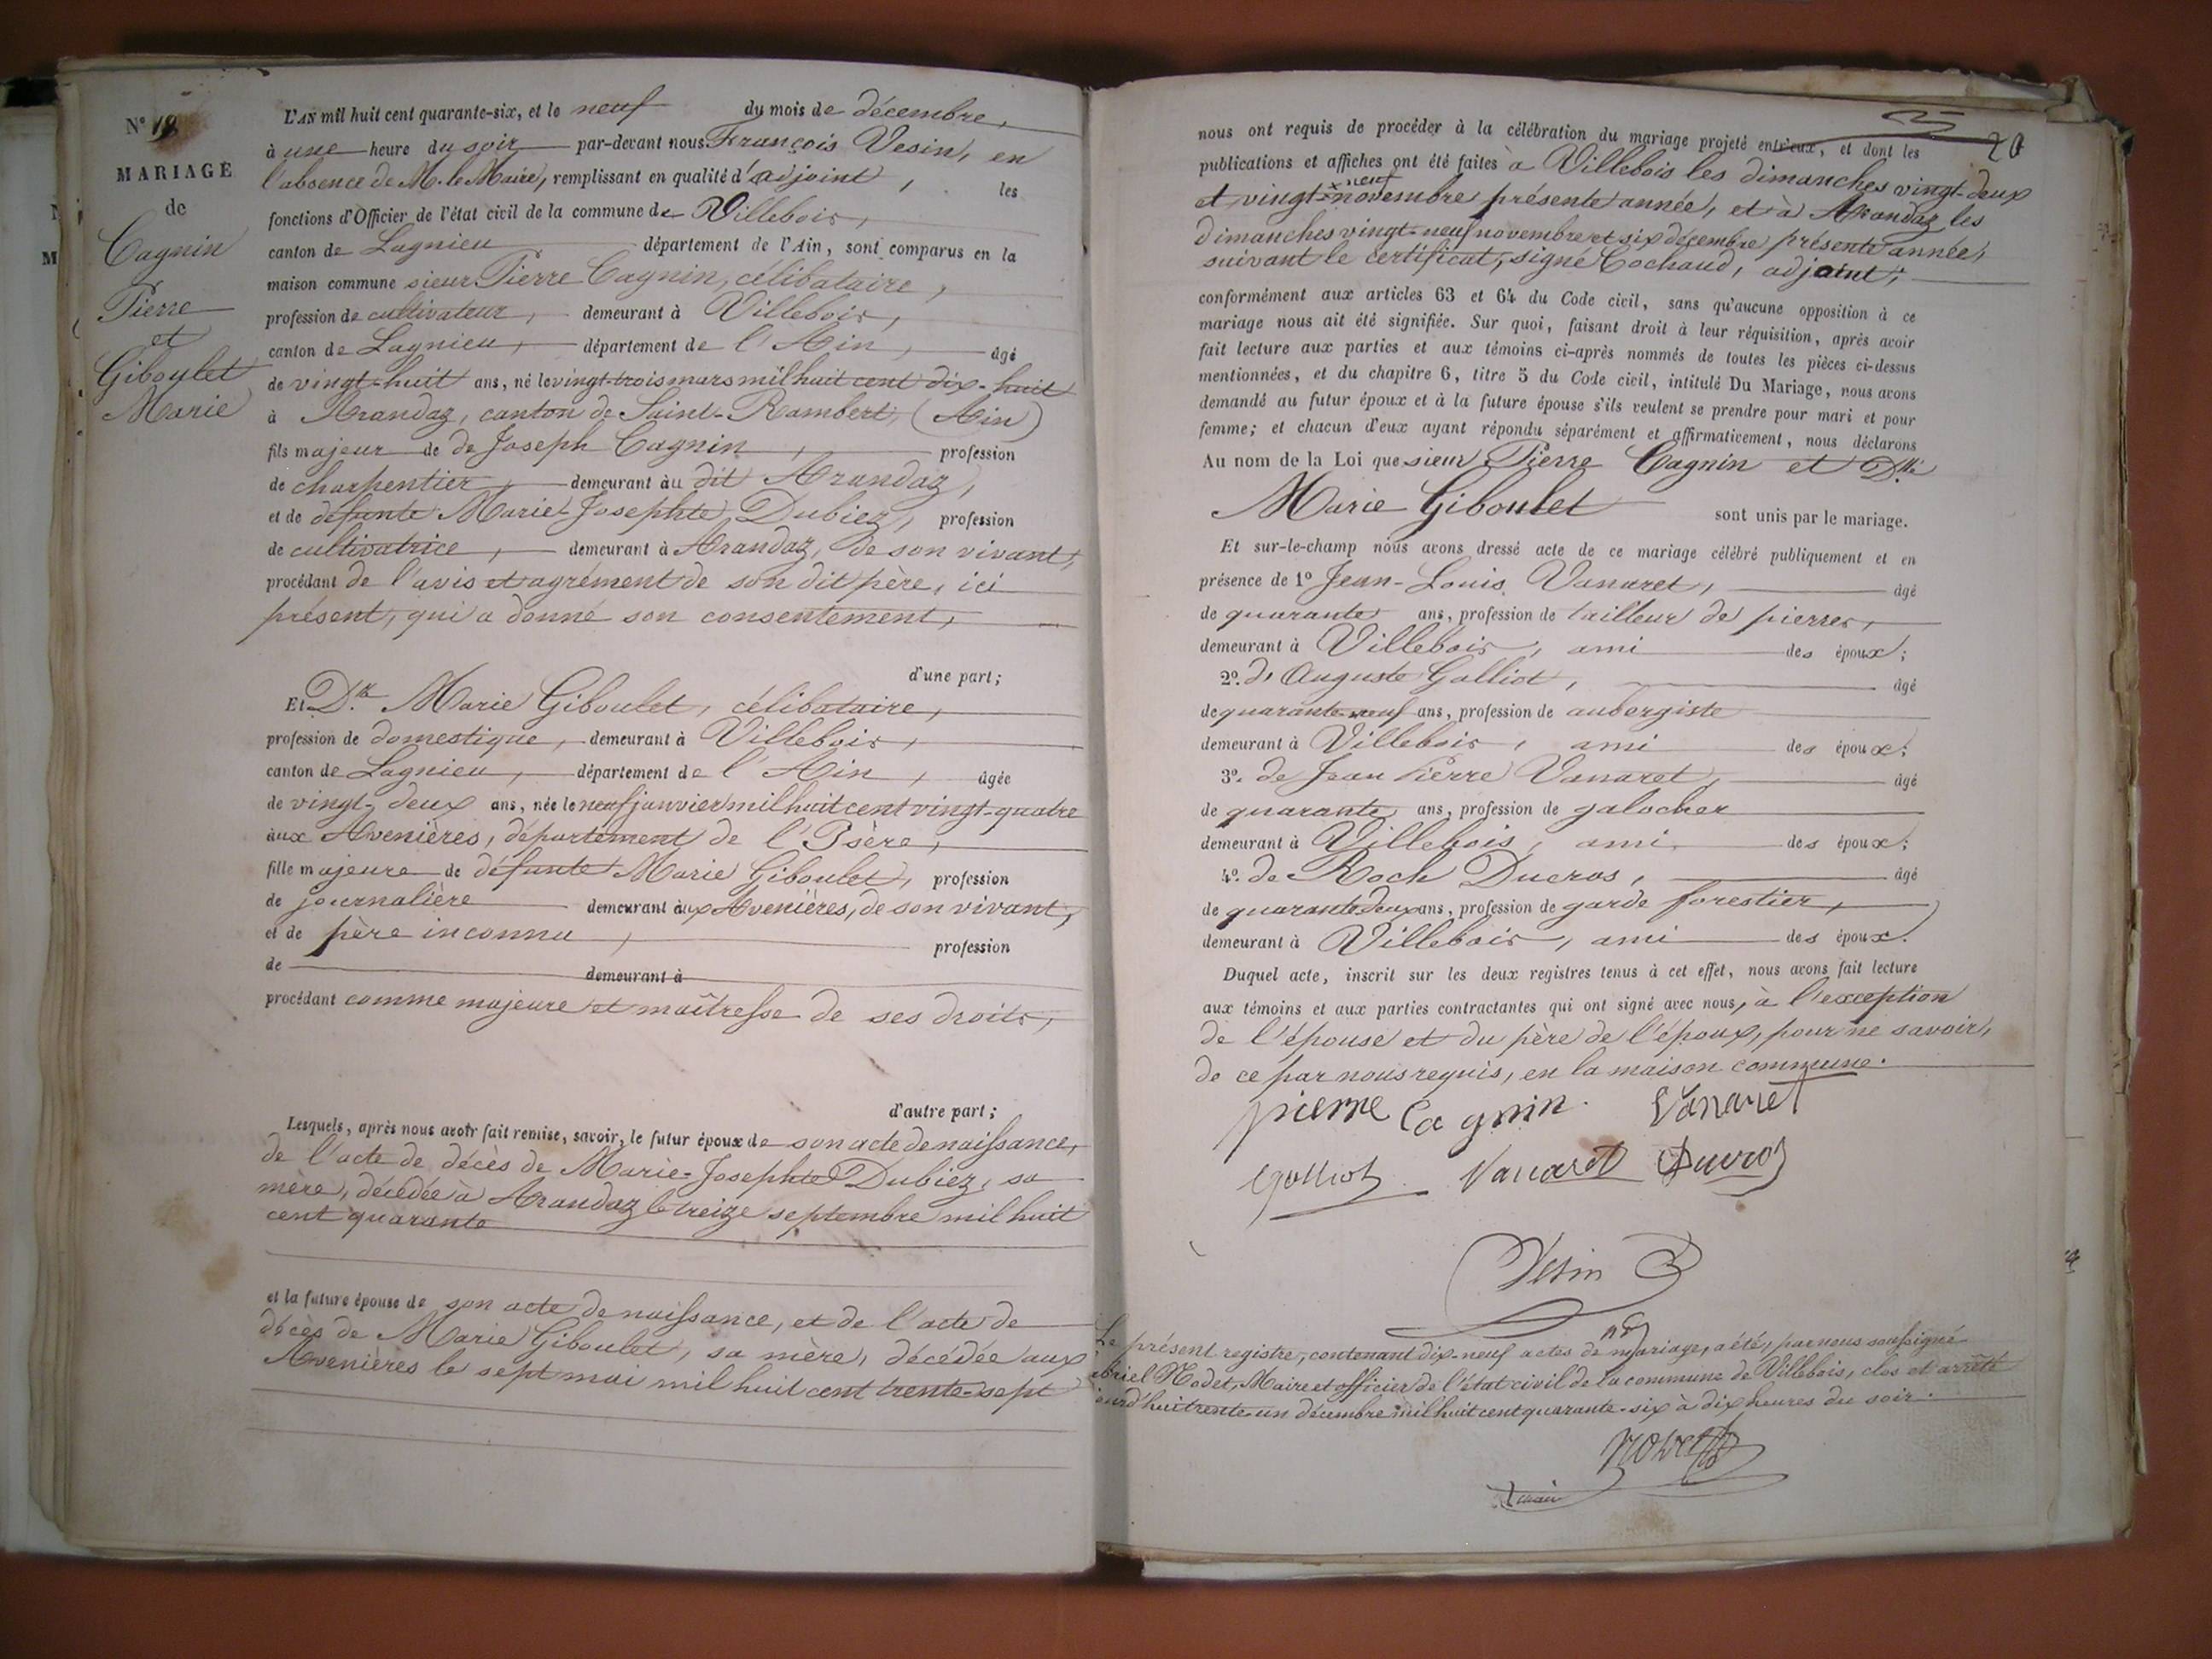 N° 19
MARIAGE
de
Cagnin
Pierre
et
Giboulet
Marie
L'AN mil huit cent quarante-six, et le neuf du mois de décembre,
à une heure du soir par-devant nous François Vesin, en
l'absence de M. le Maire, remplissant en qualité d'adjoint, les
fonctions d'Officier de l'état civil de la commune de Villebois,
canton de Lagnieu département de l'Ain, sont comparus en la
maison commune sieur Pierre Cagnin, célibataire,
profession de cultivateur, demeurant à Villebois,
canton de Lagnieu, département de l'Ain, âgé
de vingt-huit ans, né le vingt-trois mars mil huit cent dix-huit
à Arandaz, canton de Saint-Rambert, (Ain)
fils majeur de de Joseph Cagnin, profession
de charpentier, demeurant au dit Arandaz,
et de défunte Marie-Josephte Dubiez, profession
de cultivatrice, demeurant à Arandaz, de son vivant,
procédant de l'avis et agrément de son dit père, ici
présent, qui a donné son consentement,
d'une part;
Et Dlle Marie Giboulet, célibataire,
profession de domestique, demeurant à Villebois,
canton de Lagnieu, département de l'Ain, âgée
de vingt-deux ans, née le neuf janvier mil huit cent vingt-quatre
aux Avenières, département de l'Isère,
fille majeure de défunte Marie Giboulet, profession
de journalière demeurant aux Avenières, de son vivant,
et de père inconnu, profession
de demeurant à
procédant comme majeure et maîtresse de ses droits,
d'autre part;
Lesquels, après nous avoir fait remise, savoir, le futur époux de son acte de naissance,
de l'acte de décès de Marie-Josephte Dubiez, sa
mère, décédée à Arandaz le treize septembre mil huit
cent quarante
et la future épouse de son acte de naissance, et de l'acte de
décès de Marie Giboulet, sa mère, décédée aux
Avenières le sept mai mil huit cent trente-sept
20
nous ont requis de procéder à la célébration du mariage projeté entr'eux, et dont les
publications et affiches ont été faites à Villebois les dimanches vingt-deux
et vingt-neuf novembre présente année, et à Arandaz les
dimanches vingt-neuf novembre et six décembre présente année,
suivant le certificat, signé Cochaud, adjoint,
conformément aux articles 63 et 64 du Code civil, sans qu'aucune opposition à ce
mariage nous ait été signifiée. Sur quoi, faisant droit à leur réquisition, après avoir
fait lecture aux parties et aux témoins ci-après nommés de toutes les pièces ci-dessus
mentionnées, et du chapitre 6, titre 5 du Code civil, intitulé Du Mariage, nous avons
demandé au futur époux et à la future épouse s'ils veulent se prendre pour mari et pour
femme; et chacun d'eux ayant répondu séparément et affirmativement, nous déclarons
Au nom de la Loi que sieur Pierre Cagnin et Dlle
Marie Giboulet sont unis par le mariage.
Et sur-le-champ nous avons dressé acte de ce mariage célébré publiquement et en
présence de 1° Jean-Louis Vanaret, âgé
de quarante ans, profession de tailleur de pierres,
demeurant à Villebois, ami des époux;
2°. d'Auguste Galliot, âgé
de quarante-neuf ans, profession de aubergiste
demeurant à Villebois, ami des époux;
3°. de Jean Pierre Vanaret, âgé
de quarante ans, profession de galocher
demeurant à Villebois, ami des époux;
4°. de Roch Ducros, âgé
de quarante deux ans, profession de garde forestier,
demeurant à Villebois, ami des époux.
Duquel acte, inscrit sur les deux registres tenus à cet effet, nous avons fait lecture
aux témoins et aux parties contractantes qui ont signé avec nous, à l'exception
de l'épouse et du père de l'époux, pour ne savoir,
de ce par nous requis, en la maison commune.
pierre Cagnin. Vanaret
Galliot Vanaret Ducros
Vesin
Le présent registre, contenant dix-neuf actes de mariage, a été, par nous soussigné
abriel Nodet, Maire et officier de l'état civil de la commune de Villebois, clos et arrêté
ourd'hui trente-un décembre mil huit cent quarante-six à dix heures du soir.
Nodet
maire